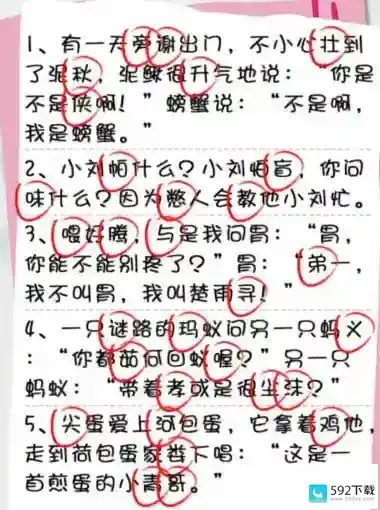 1、有一天旁谢出门，不小心壮到
了泥秋，泥鳅很升气地说：“你是
不是侠啊！”螃蟹说：“不是啊，
我是螃蟹。”
2、小刘帕什么？小刘怕盲，你问
味什么？因为憋人会教他小刘忙。
3、喂好腾，与是我问胃：“胃，
你能不能别疼了？”胃：“弟一，
我不叫胃，我叫楚雨寻！”
4、一只谜路的玛蚁问另一只蚂义
：“你都茄何回蚁喔？”另一只
蚂蚁：“带着孝或是很尘沫？”
5、尖蛋爱上河包蛋，它拿着鸡他，
走到荷包蛋家咎下唱：“这是一
首煎蛋的小青哥。”
592下载